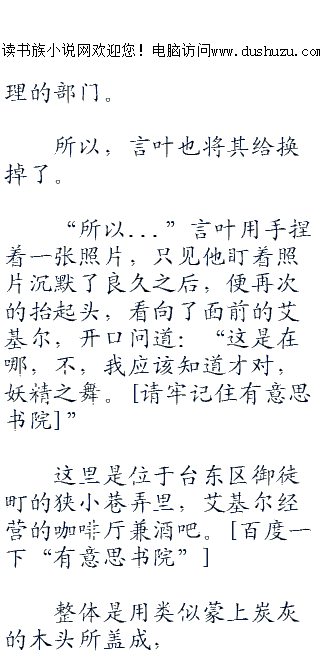 读书族小说网欢迎您！电脑访问www.dushuzu.com
理的部门。
所以，言叶也将其给换
掉了。
“所以...”言叶用手捏
着一张照片，只见他盯着照
片沉默了良久之后，便再次
的抬起头，看向了面前的艾
基尔，开口问道：“这是在
哪，不，我应该知道才对，
妖精之舞。[请牢记住有意思
书院]”
这里是位于台东区御徒
町的狭小巷弄里，艾基尔经
营的咖啡厅兼酒吧。[百度一
下“有意思书院”]
整体是用类似蒙上炭灰
的木头所盖成，